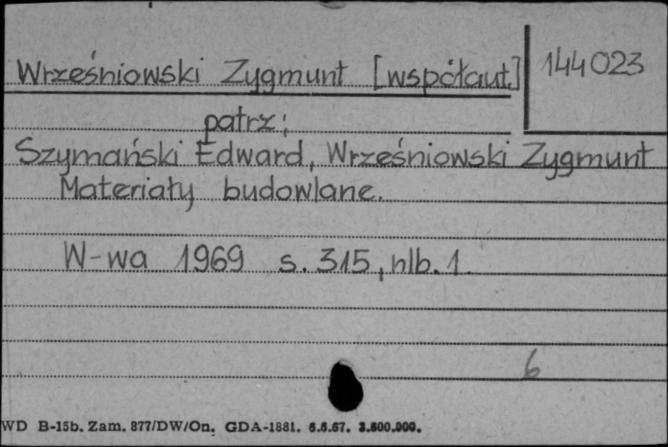 Wrześniowski Zygmunt [współaut.] 144023
patrz:
Szymański Edward, Wrześniowski Zygmunt
Materiały budowlane.
W-wa 1969 s. 315, nlb. 1.
6
WD B-15b. Zam. 877/DW/On. GDA-1881. 6.6.67. 3.600.000.